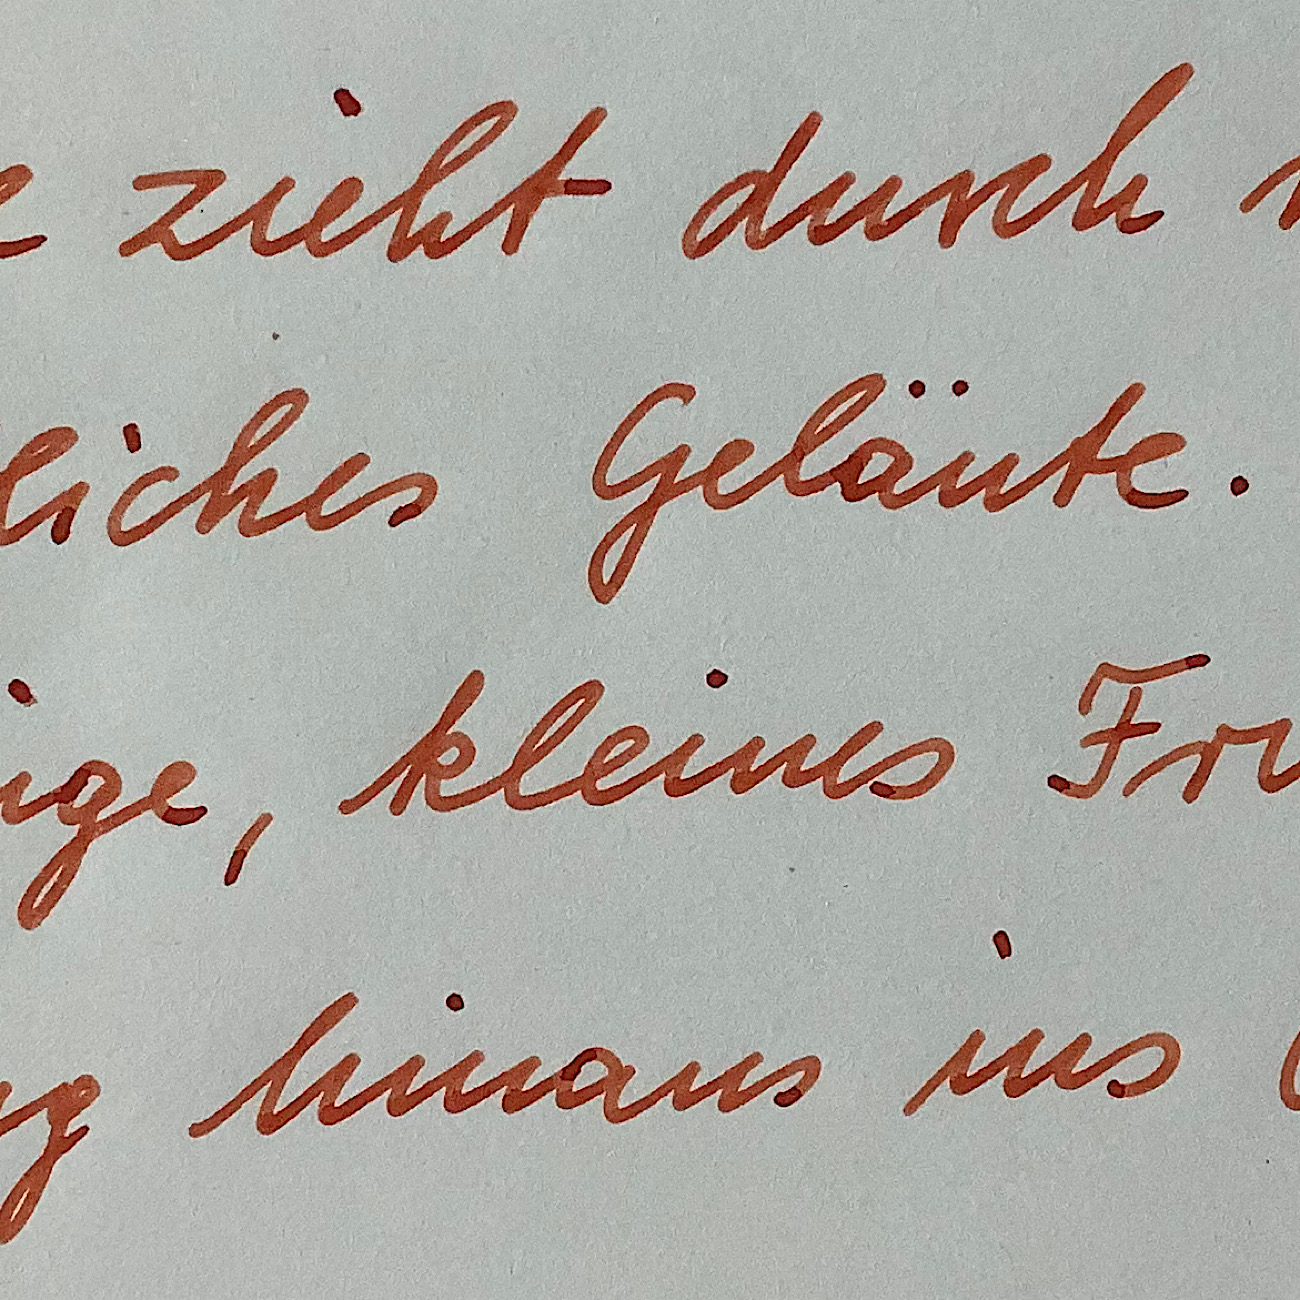 e zieht durch
liches Geläute.
inge, kleines Frü
ng hinaus ins